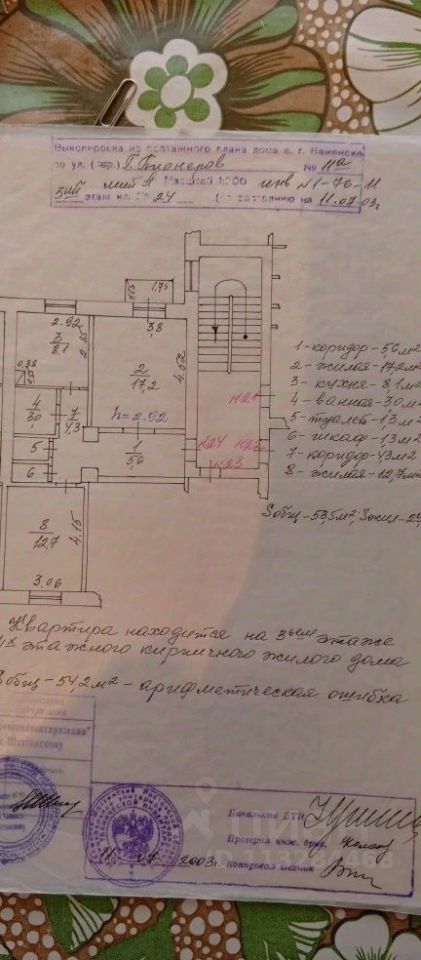 Выкопировка из поэтажного плана дома в г. Каменске
по ул. (пер.) Г. Пионеров № 11а
лит А Масштаб 1:200 инв №1-76-11
этаж кв. 24 (по состоянию на 11.07.03г
1,75
2.92
3,8
3
8,1
2.85
0.38
2
17,2
4.52
h=2.92
4
3,0
7
4,3
5
6
1
5,6
№21
№24 №22
№23
8
12,7
4.15
3.06
1-коридор-5,6м²
2-жилая-17,2м²
3-кухня-8,1м²
4-ванная-3,0м²
5-туалет-1,3м²
6-шкаф-1,3м²
7-коридор-4,3м²
8-жилая-12,7м²
Sобщ-53,5м²; Sжил-29
Квартира находится на 3ьем этаже
4х этажного кирпичного жилого дома
Sобщ-54,2м²-арифметическая ошибка
Начальник БТИ
Проверил инж. бриг.
Копировал техник
11 07 2003г.